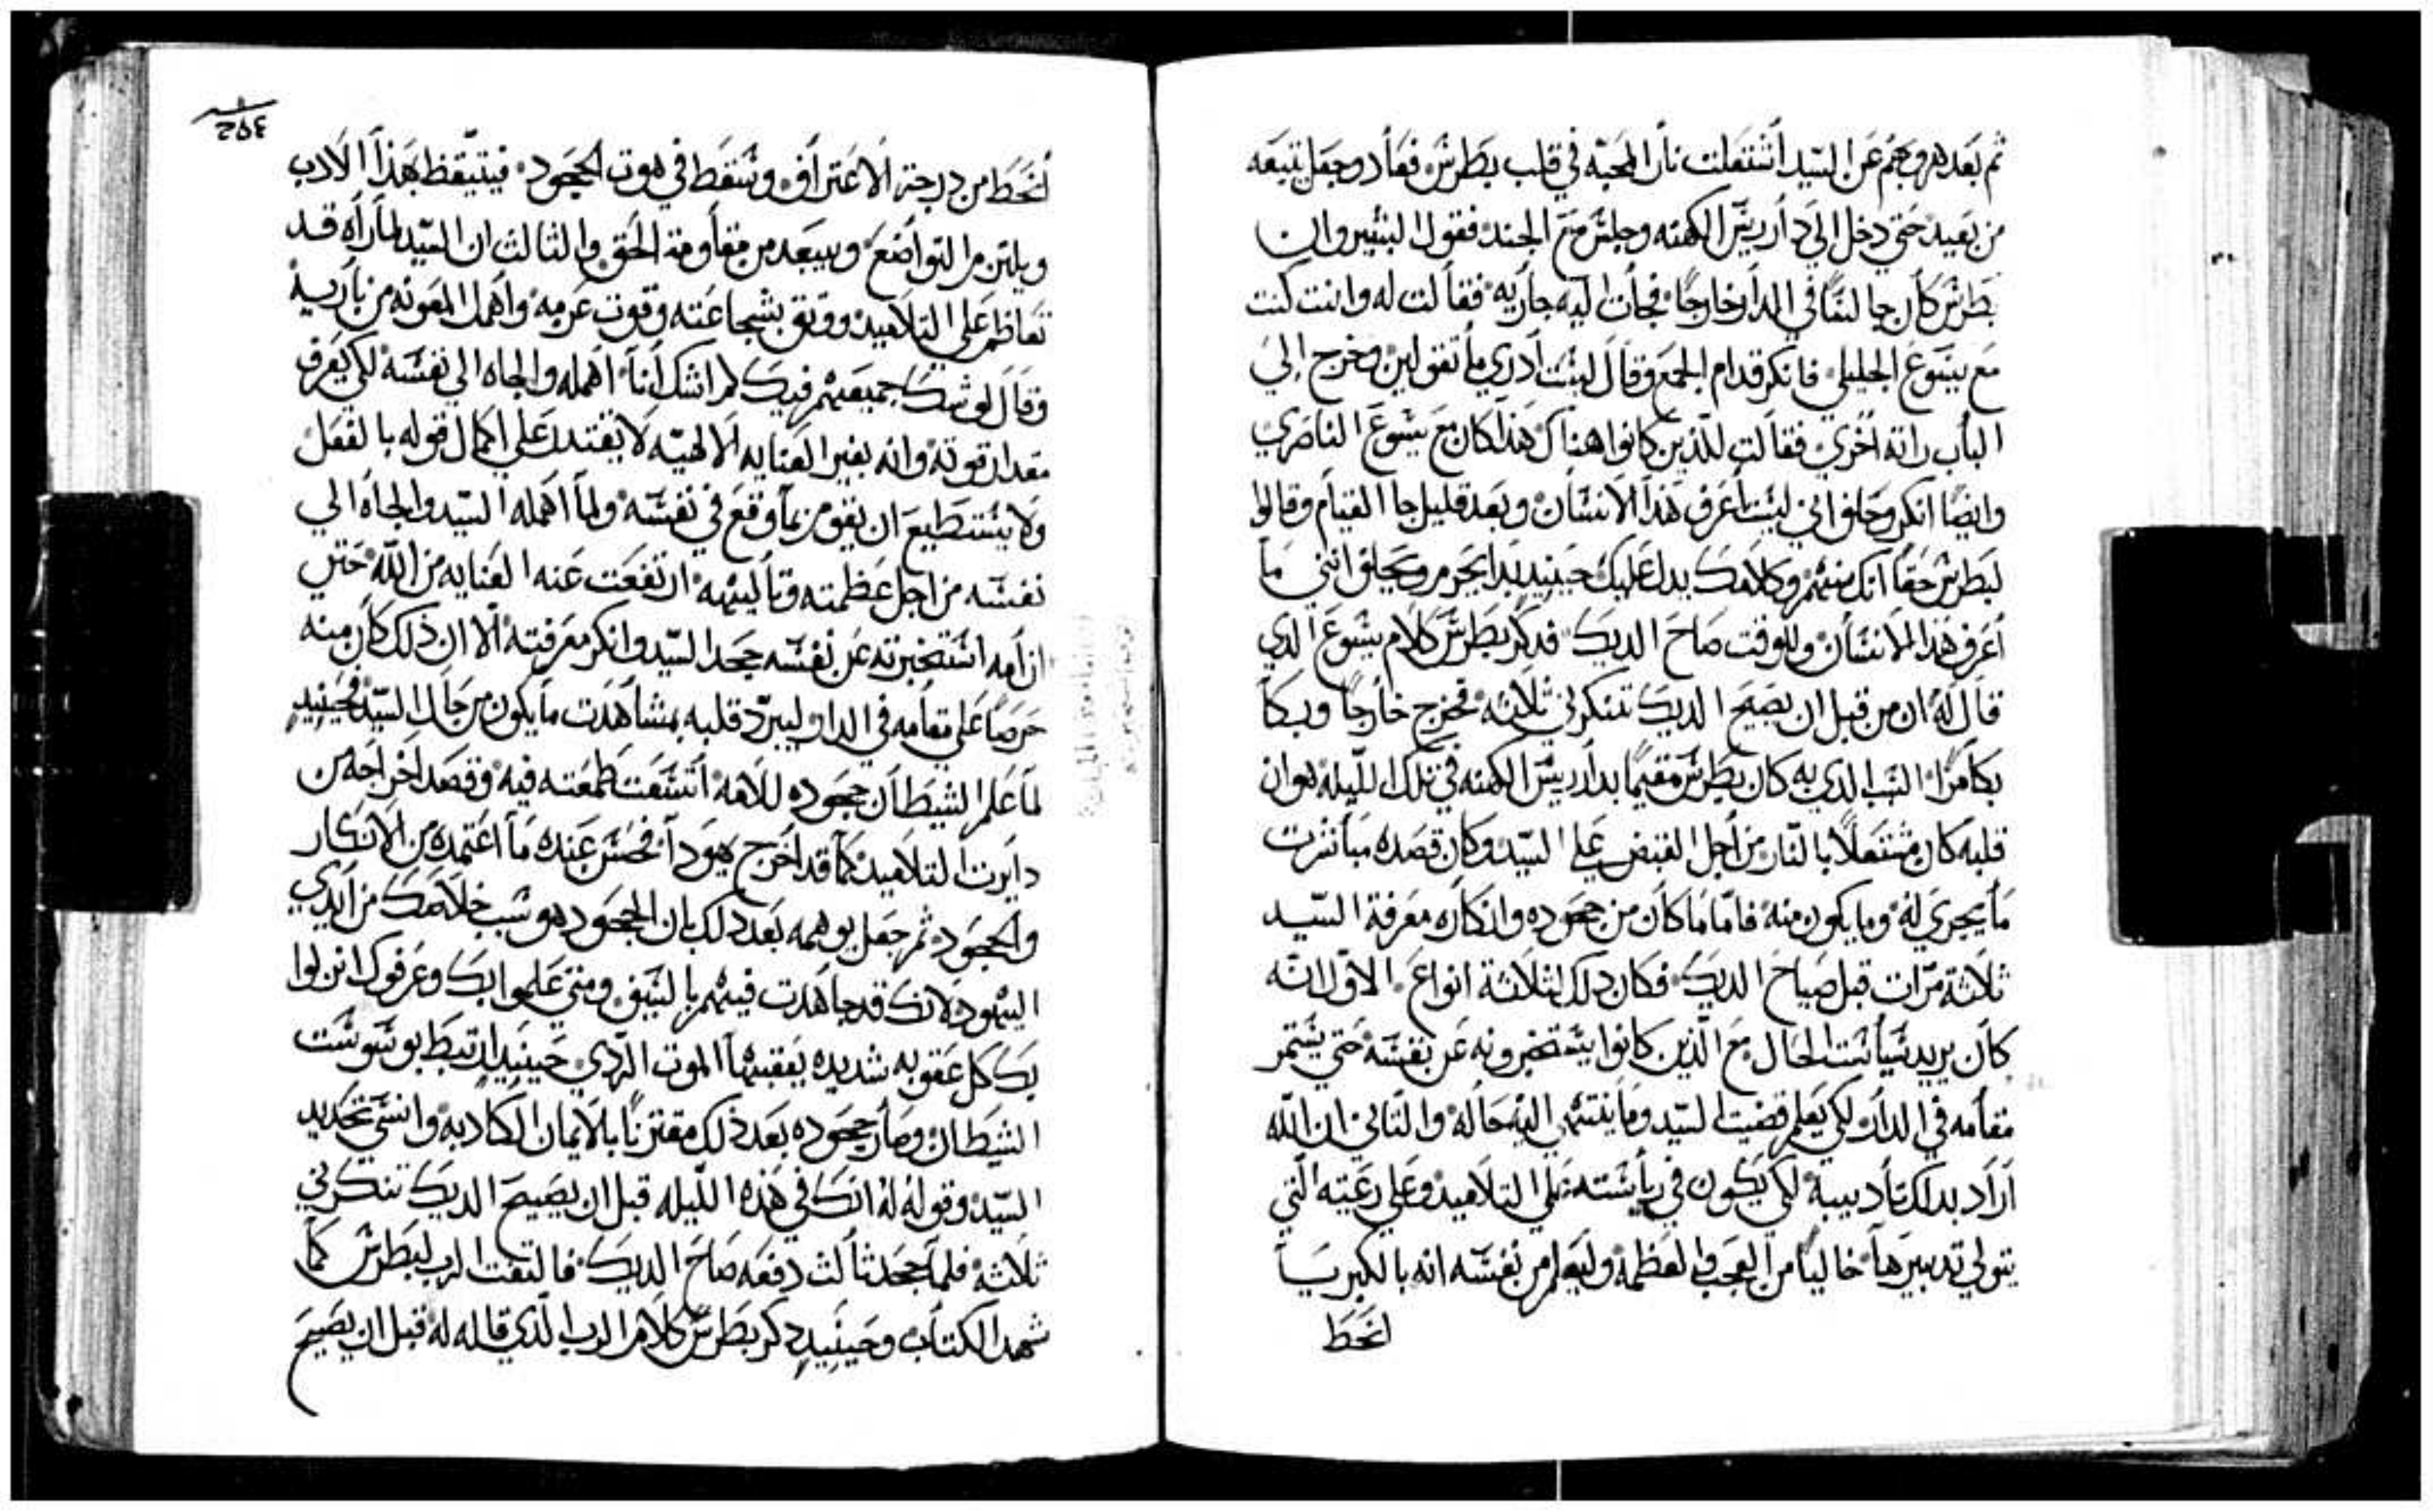 ثم بعد هروبهم عن السيد اشتعلت نار المحبه في قلب بطرش فعاد وجعل يتبعه
من بعيد حتي دخل الي دار ريش الكهنه وجلش مع الجند فقول البشير وان
بطرش كان جالشا في الدار خارجا فجات اليه جاريه فقالت له وانت كنت
مع يشوع الجليلي فانكر قدام الجمع وقال لشت ادري ما تقولين وخرج الي
الباب راته اخري فقالت للذين كانوا هناك هذا كان مع يشوع الناصري
وايضا انكر وحلف اني لشت اعرف هذا الانشان وبعد قليل جا القيام وقالوا
لبطرش حقا انك منهم وكلامك يدل عليك حينيد بدا يحرم ويحلف انني ما
اعرف هذا الانشان وللوقت صاح الديك فدكر بطرش كلام يشوع الدي
قال له ان من قبل ان يصيح الديك تنكرني ثلاثه فخرج خارجا وبكا
بكا مرا السبب الدي به كان بطرش مقيما بدار ريش الكهنه في تلك الليله هو ان
قلبه كان مشتعلا بالنار من اجل القبض علي السيد وكان قصده مباشرت
ما يجري له وما يكون منه فاما ما كان من جحوده وانكاره معرفة السيد
ثلاثة مرات قبل صياح الديك فكان دلك لثلاثة انواع الاول انه
كان يريد شياشت الحال مع الذين كانوا يشتخبرونه عن نفشه حتي يشتمر
مقامه في الدار لكي يعلم قضيت السيد وما ينتهي اليه حاله والثاني ان الله
اراد بدلك تاديبه لكي يكون في رياشته علي التلاميد وعلي رعيته التي
يتولي تدبيرها خاليا من العجب والعظمة وليعلم من نفشه انه بالكبريا
انحط
٢٥٤
انحط من درجة الاعتراف وشقط في هوت الجحود فيتيقظ بهذا الادب
ويلتزم التواضع ويبعد من مقاومة الحق والثالث ان السيد لما راه قد
تعاظم علي التلاميد ووتق بشجاعته وقوت عزمه واهمل المعونه من باريه
وقال لو شك جميعهم فيك لم اشك انا اهمله والجاه الي نفشه لكي يعرف
مقدار قوته وانه بغير العنايه الالهيه لا يقتدر علي اكمال قوله بالفعل
ولا يشتطيع ان يقوم بما وقع في نفشه ولما اهمله السيد والجاه الي
نفشه من اجل عظمته وتاليهه ارتفعت عنه العنايه من الله حتي
ان امه اشتخبرته عن نفشه جحد السيد وانكر معرفته الا ان ذلك كان منه
حرصا علي مقامه في الدار ليبرد قلبه بمشاهدت ما يكون من حال السيد فحينيد
لما علم الشيطان جحوده للاهه اتشعت طمعته فيه وقصد اخراجه من
دايرت التلاميد كما قد اخرج يهودا فحشن عنده ما اعتمده من الانكار
والجحود ثم جعل يوهمه بعد دلك بان الجحود هو شبب خلاصك من ايدي
اليهود لانك قد جاهدت فيهم بالشيف ومتي علموا بك وعرفوك انزلوا
بك كل عقوبه شديده يعقبها الموت الردي حينيد ارتبط بوشوشت
الشيطان وصار جحوده بعد ذلك مقترنا بالايمان الكادبه وانشي تحديد
السيد وقوله له انك في هذه الليله قبل ان يصيح الديك تنكرني
ثلاثه فلما جحد ثالث دفعه صاح الديك فالتفت الرب لبطرش كما
شهد الكتاب وحينيد دكر بطرش كلام الرب الذي قاله له قبل ان يصيح